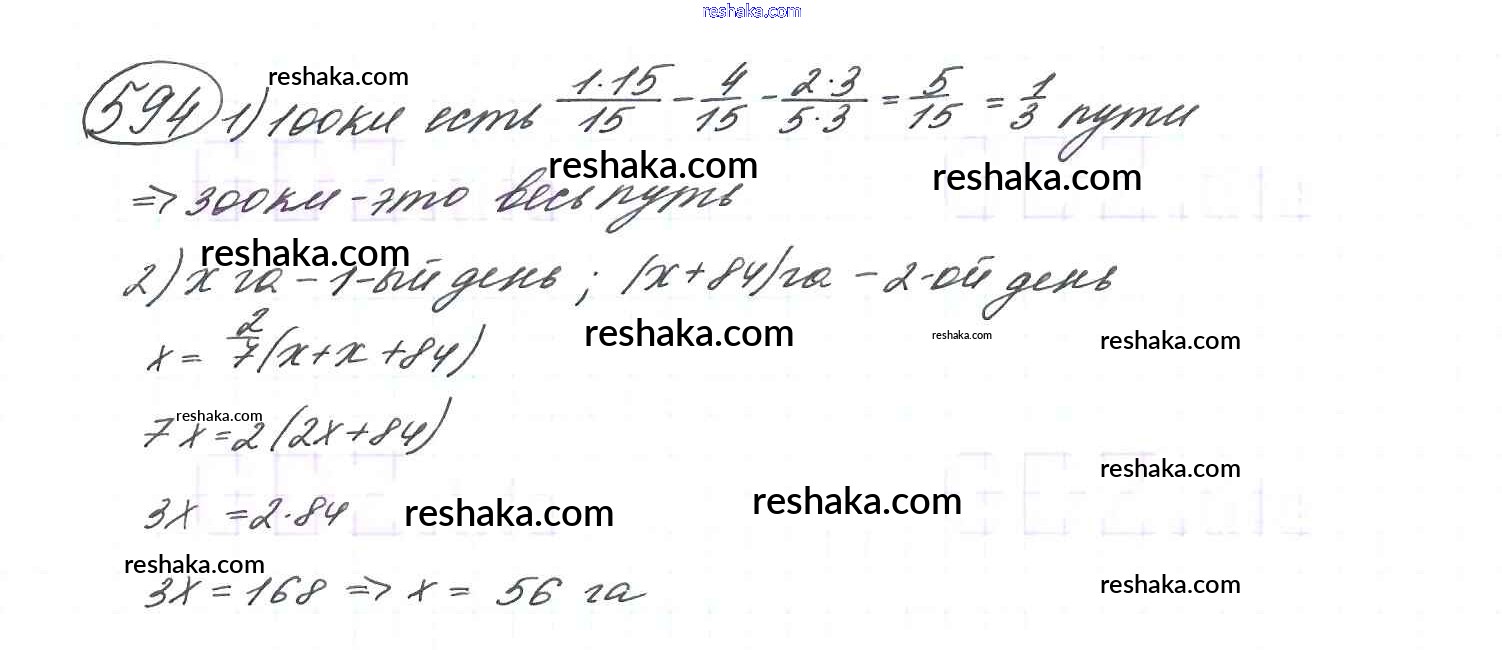 reshaka.com
594 1) 100км есть 1·15/15 - 4/15 - 2·3/5·3 = 5/15 = 1/3 пути
reshaka.com
⇒ 300км - это весь путь
reshaka.com reshaka.com
reshaka.com
2) x га - 1-ый день ; (x+84)га - 2-ой день
x = 2/7(x+x+84)
reshaka.com reshaka.com reshaka.com
reshaka.com
7x=2(2x+84)
reshaka.com
3x =2·84
reshaka.com reshaka.com
reshaka.com
3x=168 ⇒ x = 56 га
reshaka.com